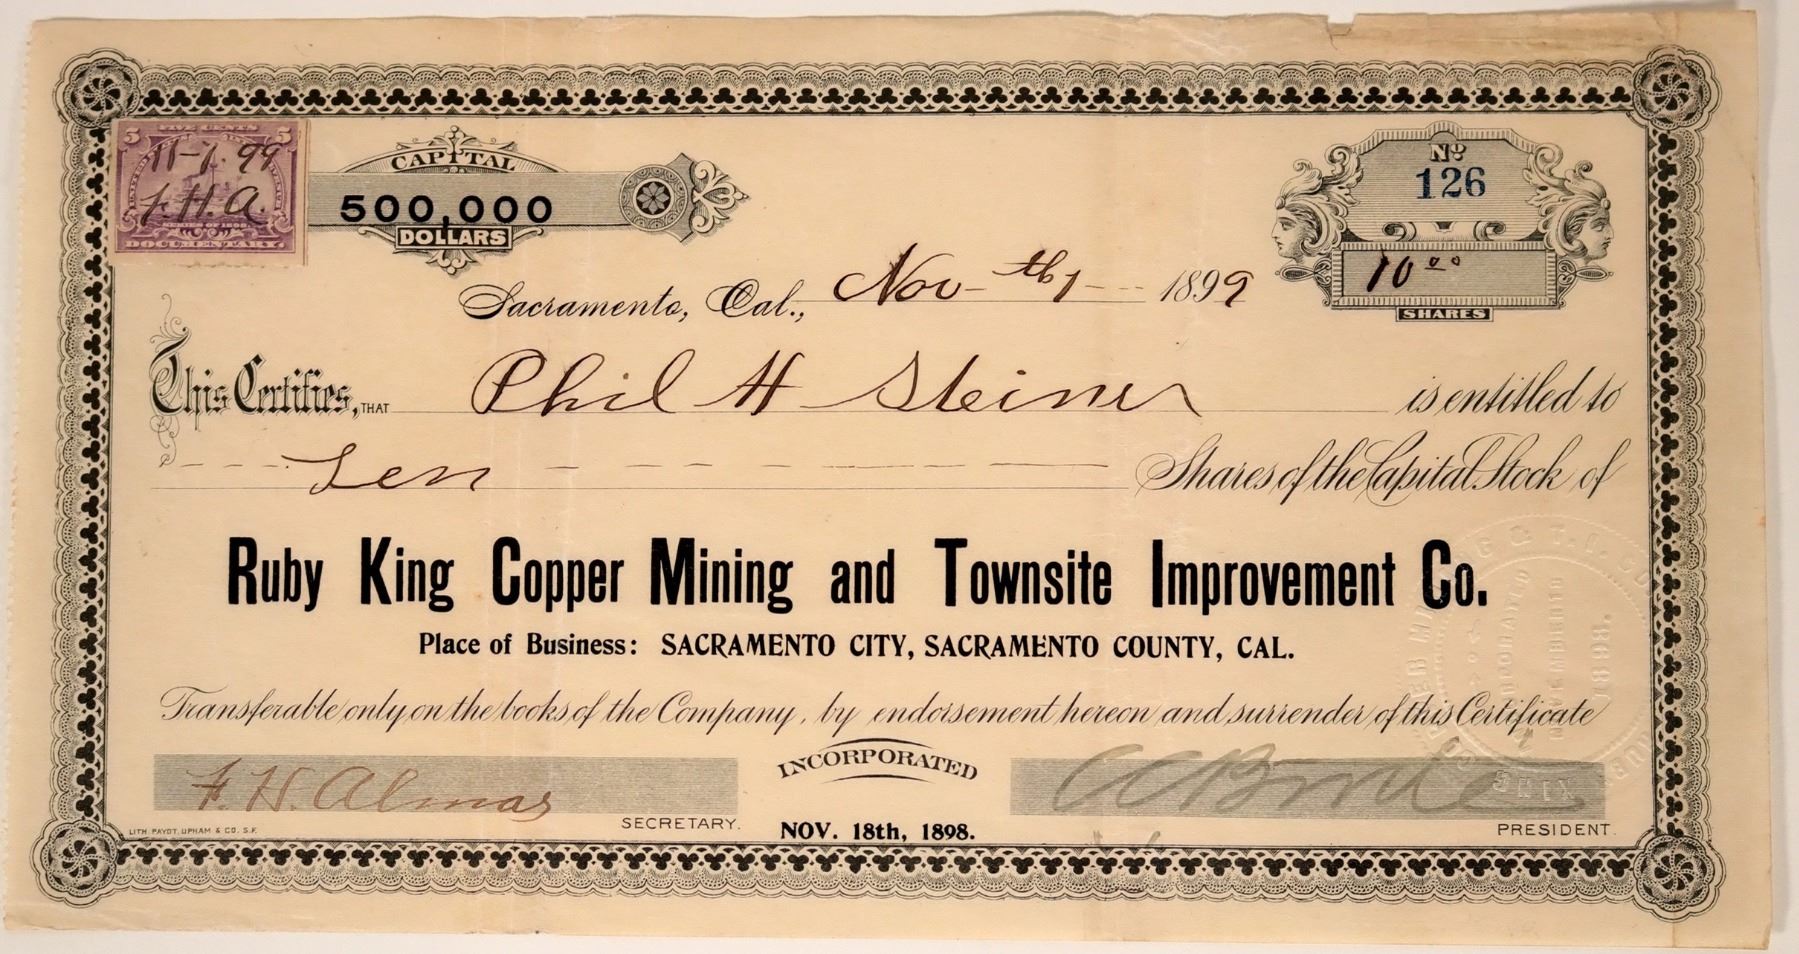 FIVE CENTS
5 5
11-1.99
F. H. A.
SERIES OF 1898
DOCUMENTARY.
CAPITAL
500,000
DOLLARS
Nº
126
10 00
SHARES
Sacramento, Cal., Nov- th 1 -- 1899
This Certifies, THAT Phil H Steiner is entitled to
Ten Shares of the Capital Stock of
Ruby King Copper Mining and Townsite Improvement Co.
Place of Business: SACRAMENTO CITY, SACRAMENTO COUNTY, CAL.
Transferable only on the books of the Company, by endorsement hereon and surrender of this Certificate
F. H. Almas
SECRETARY.
INCORPORATED
NOV. 18th, 1898.
PRESIDENT.
LITH. PAYOT, UPHAM & CO. S.F.
1898.